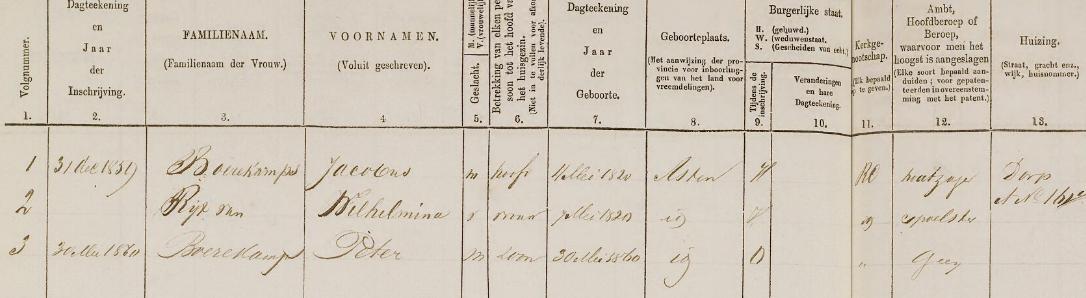 Volgnummer.
Dagteekening
en
Jaar
der
Inschrijving.
FAMILIENAAM.
(Familienaam der Vrouw.)
VOORNAMEN.
(Voluit geschreven).
Geslacht.
M. (mannelijk)
V. (vrouwelijk)
Betrekking van elken per-
soon tot het hoofd van
het huisgezin.
Dagteekening
en
Jaar
der
Geboorte.
Geboorteplaats.
(Met aanwijzing der pro-
vincie voor inboorlin-
gen van het land voor
vreemdelingen).
Burgerlijke staat.
H. (gehuwd.)
W. (weduwenstaat.
S. (Gescheiden van echt.)
Tijdens de
inschrijving.
Veranderingen
en hare
Dagteekening.
Kerkge-
nootschap.
(Elk bepaald
op te geven.)
Ambt,
Hoofdberoep of
Beroep,
waarvoor men het
hoogst is aangeslagen
(Elke soort bepaald aan-
duiden; voor gepaten-
teerden in overeenstem-
ming met het patent.)
Huizing.
(Straat, gracht enz.,
wijk, huisnummer.)
1. 2. 3. 4 5. 6. 7. 8. 9. 10. 11. 12. 13.
1 31 dec 1859 Boerekamps Jacobus m hoofd 4 Mei 1820 Asten H RC houtzager Dorp
2 Rijt van Wilhelmina v vrouw 7 Mei 1820 ig id
3 30 Mei 1860 Boerekamps Peter m zoon 30 Mei 1860 ig O " Geen